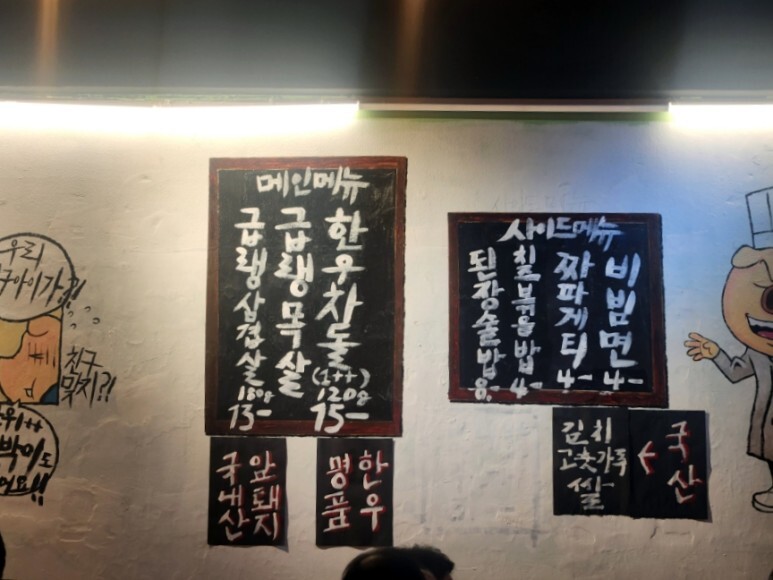 우리
구아이가?!
친구
맞지?!
우1++
박이도
메인메뉴
한우차돌
(1++)
120g
15-
급랭목살
급랭삼겹살
180g
13-
한우
명품
암돼지
국내산
사이드메뉴
비빔면
4-
짜파게티
4-
치즈볶음밥
4-
된장술밥
8-
김치
고춧가루
쌀
국산